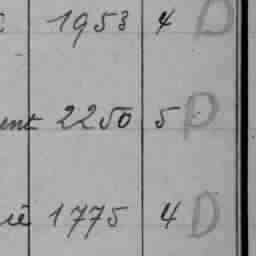 1953 4 D
ent 2250 5 D
ié 1775 4 D